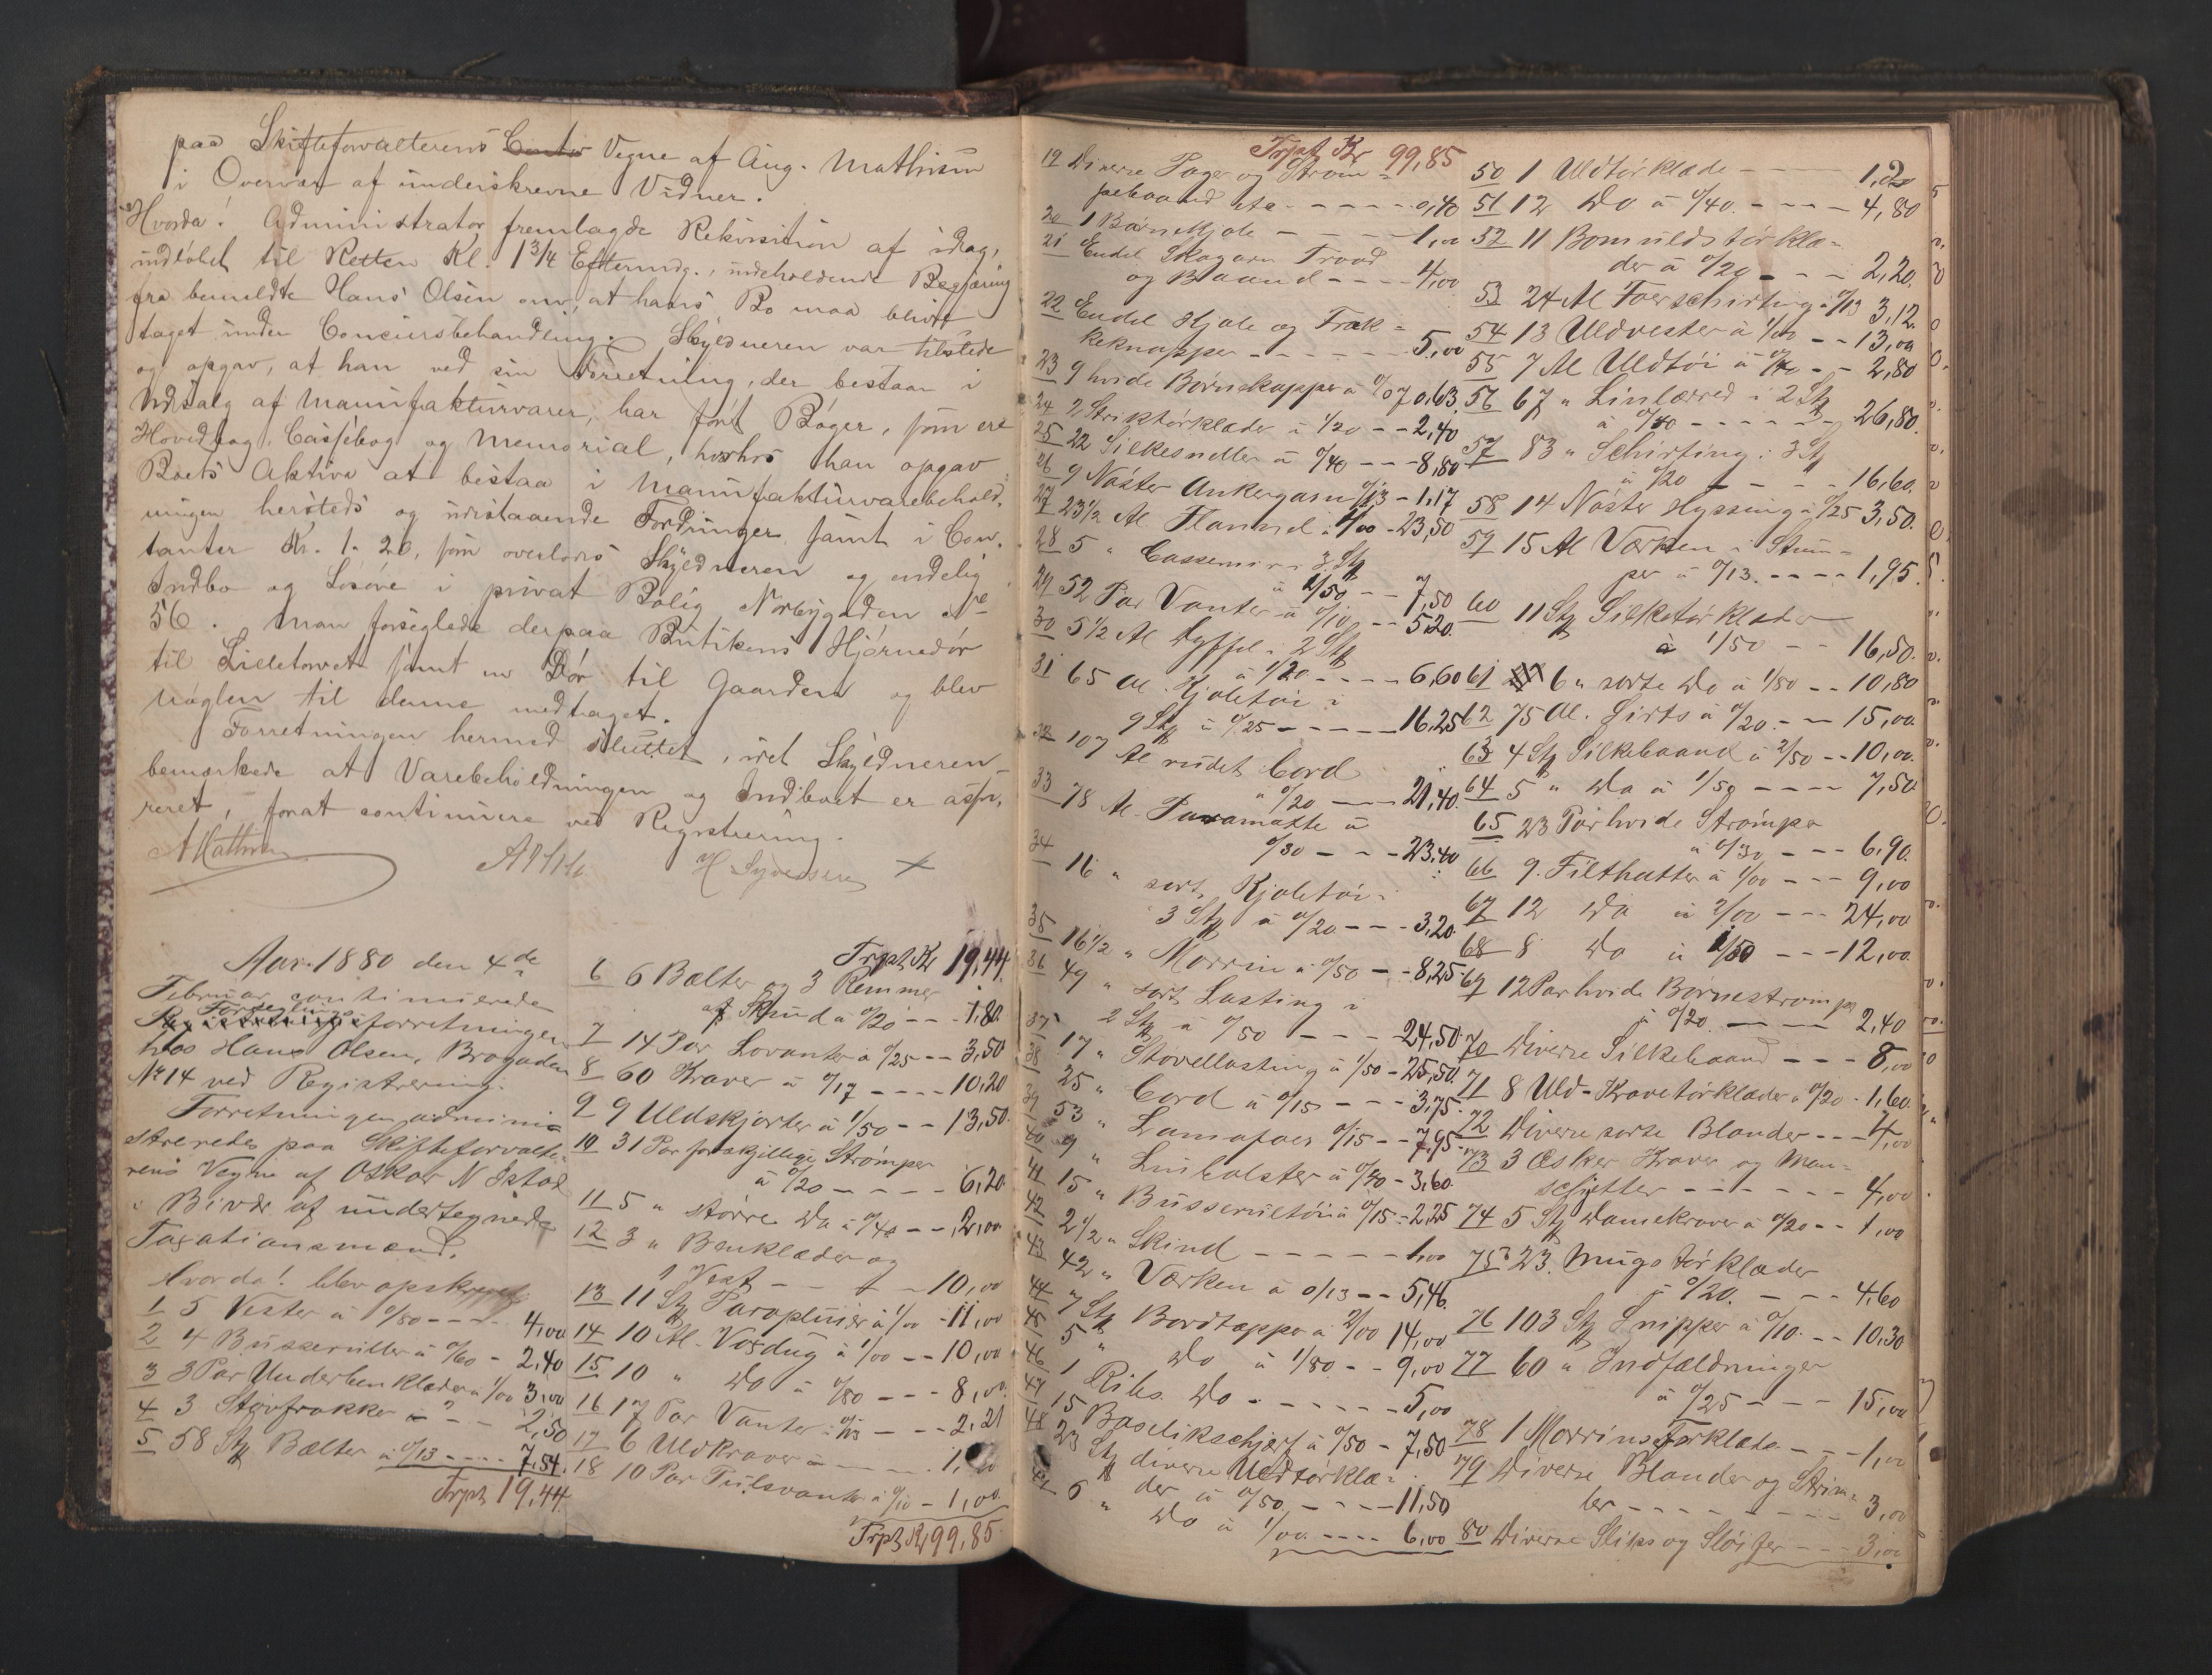 paa Skifteforvalterens Contor Vegne af Aug. Mathisen
i Overvær af underskrevne Vidner.
Hvorda! Administrator fremlagde Rekvisition af idag,
indløbet til Retten Kl. 1 3/4 Eftermdg., indeholdende Begjæring
fra bemeldte Hans Olsen om, at hans Bo maa blive
taget under Concursbehandling. Skyldneren var tilstede
og opgav, at han ved sin Forretning, der bestaar i
Udsalg af Manufakturvarer, har ført Bøger, som ere
Hovedbog, Cassebog og Memorial, hvorhos han opgav
Boets Aktiva at bestaa i Manufakturvarebehold-
ningen hersteds og udestaaende Fordringer samt i Con-
tanter Kr. 1.20, som overlodes Skyldneren og endelig
Indbo og Løsøre i privat Bolig Norbygaden No
56. Man forseglede derpaa Butikens Hjørnedør
til Lilletorvet samt en Dør til Gaarden og blev
Nøglen til denne medtaget.
Forretningen hermed sluttet, idet Skyldneren
bemærkede at Varebeholdningen og Indboet er assu-
reret, forat continuere ved Registrering.
AMathisen
H Syvertsen
Aar 1880 den 4de
Februar continuerede
Forseglings
forretningen
hos Hans Olsen, Brogaden
No 14 ved Registrering.
Forretningen admini-
streredes paa Skifteforvalte-
rens Vegne af Oskar N
i Bivær af undertegnede
Taxationsmænd.
Hvorda! blev opskrevet:
1 5 Vester à 0/80 - - - 4,00
2 4 Busseruller à 0/60 - 2,40
3 3 Par Underbenklæder à 1/00 3,00
4 3 Støvfrakker à ? - - 2,50
5 58 Stk Bælter à 0/13 - - - - 7,54.
Trpt 19,44
Trpt Kr 19,44.
6 6 Bælter og 3 Remmer
af Skind à 0/20 - - 1,80
7 14 Par Lovanter à 0/25 - - 3,50
8 60 Kraver à 0/17 - - - - 10,20
9 9 Uldskjorter à 1/50 - - 13,50
10 31 Par forskjellige Strømper
à 0/20 - - - - 6,20
11 5 " større Do à 0/40 - - 2,00
12 3 " Benklæder og
1 Vest - - - - 10,00
13 11 Stk Parapluier à 1/00 - 11,00
14 10 Al. Voxdug à 1/00 - - 10,00
15 10 " Do à 0/80 - - - 8,00
16 17 Par Vanter à 0/13 - - - 2,21
17 6 Uldkraver
18 10 Par Pulsvanter à 0/10 - 1,00
Trpt Kr 99,85
Trpt Kr 99,85
19 Diverse Poser og Strøm-
pebaand
- - - - 0,40
20 1 Børnekjole - - - - 1,00
21 Endel Skogarn Traad
og Baand - - - - 4,00
22 Endel Kjole og Frak-
keknapper - - - - - - 5,00
23 9 hvide Børnekapper à 0/07 0,63
24 2 Striktørklæder à 1/20 - - 2,40
25 22 Silkesneller à 0/40 - - - 8,80
26 9 Nøster Ankergarn 0/13 - 1,17
27 23 1/2 Al. Flannel à 1/00 - 23,50
28 5 " Cassemir i 3 Stk
à 1/50 - - 7,50
29 52 Par Vanter à 0/10 - - 5,20
30 5 1/2 Al Dyffel i 2 Stk
à 1/20 - - - - 6,60
31 65 Al. Kjoletøi i
9 Stk à 0/25 - - - - - 16,25
32 107 Al rudet Cord
à 0/20 - - - 21,40
33 78 Al. Paramatte à
0/30 - - - 23,40
34 16 " sort Kjoletøi i
3 Stk à 0/20 - - - 3,20
35 16 1/2 " Morrin à 0/50 - - 8,25
36 49 " sort Lasting i
2 Stk à 0/50 - - - 24,50
37 17 " Støvellasting à 1/50 - 25,50
38 25 " Cord à 0/15 - - - 3,75
39 53 " Lamafoer 0/15 - - 7,95
40 9 " Linbolster à 0/40 - 3,60
41 15 " Busserultøi à 0/15 - 2,25
42 2 1/2 " Skind - - - - - 1,00
43 42 " Værken à 0/13 - - 5,46
44 7 Stk Bordtæpper à 2/00 14,00
45 5 " Do à 1/80 - - 9,00
46 1 Ribs Do - - - - - - 5,00
47 15 Baselikschjerf à 0/50 - 7,50
48 23 Stk diverse Uldtørklæ-
der à 0/50 - - - - 11,50
49 6 " Do à 1/00 - - - - 6,00
50 1 Uldtørklæde - - - - 1,20
51 12 Do à 0/40 - - - - 4,80
52 11 Bomuldstørklæ-
der à 0/20 - - - 2,20
53 24 Al Foerschirting à 0/13 3,12
54 13 Uldvester à 1/00 - - 13,00
55 7 Al Uldtøi à 0/40 - - 2,80
56 67 " Linlærred i 2 Stk
à 0/40 - - - - - 26,80
57 83 " Schirting i 3 Stk
à 0/20 - - - - 16,60
58 14 Nøster Hyssing à 0/25 3,50
59 15 Al Værken i Stum-
per à 0/13 - - - - 1,95
60 11 Stk Silketørklæder
à 1/50 - - 16,50
61 6 " sorte Do à 1/80 - - 10,80
62 75 Al. Sirts à 0/20 - - 15,00
63 4 Stk Silkebaand à 2/50 - - 10,00
64 5 " Do à 1/50 - - - - 7,50
65 23 Par hvide Strømper
à 0/30 - - - 6,90
66 9 Filthatter à 1/00 - - - 9,00
67 12 Do à 2/00 - - - 24,00
68 8 Do à 1/50 - - - 12,00
69 12 Par hvide Børnestrømper
à 0/20 - - - 2,40
70 Diverse Silkebaand - - - 8,00
71 8 Uld-Kravetørklæder à 0/20 - 1,60
72 Diverse sorte Blonder - - - 4,00
73 3 Æsker Kraver og Man-
schetter - - - - - - 4,00
74 5 Stk Damekraver à 0/20 - - 1,00
75 23 Mugs tørklæder
à 0/20 - - - 4,60
76 103 Stk Snipper à 0/10 - - 10,30
77 60 " Indfældninger
à 0/25 - - - 15,00
78 1 Morrinsforklæde - - - 1,00
79 Diverse Blonder og Strim-
ler - - - - - - - - 3,00
80 Diverse Slips og Sløifer - - - 3,00